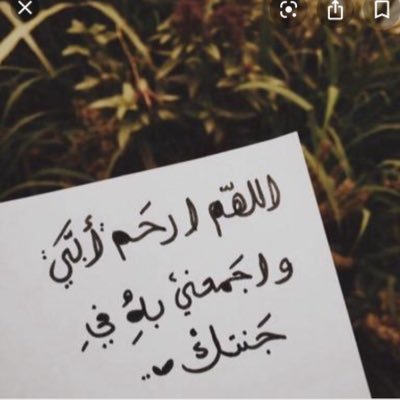 اللهّم ارحَم أبَّيَ
واجَمعني بهِ فيِ
جَنتكْ